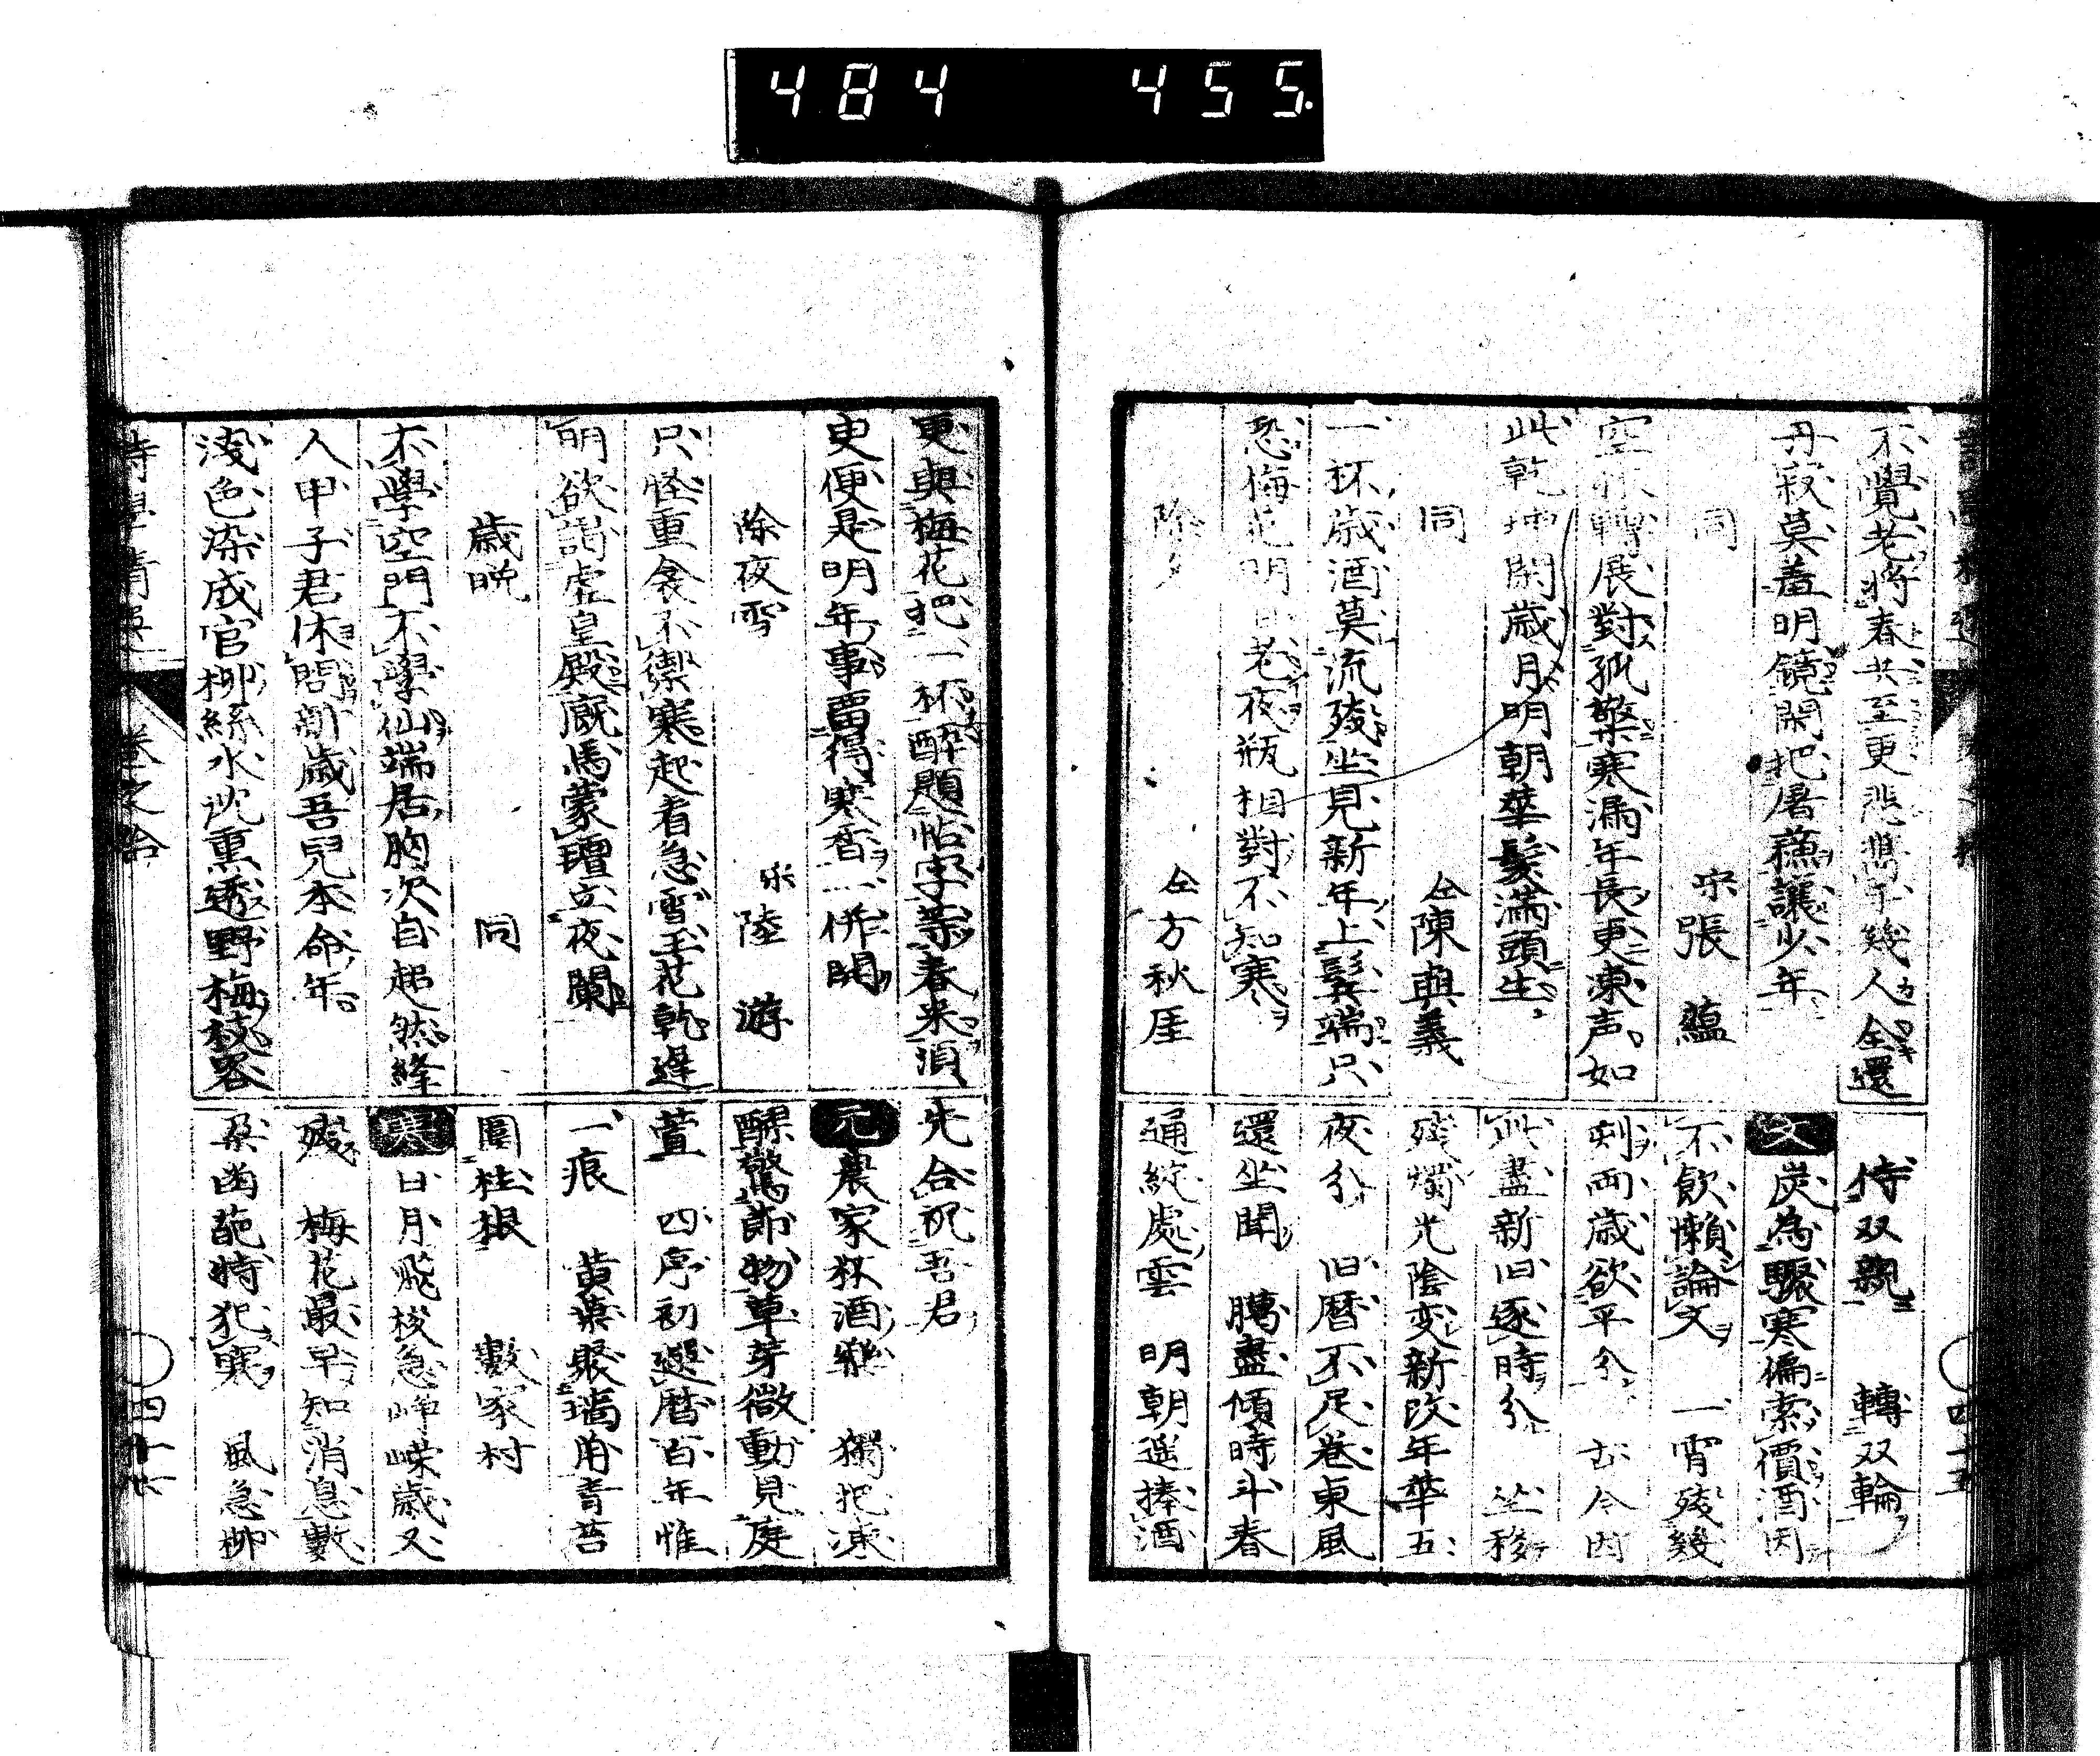 484 455
不覺老將春共至更悲携手幾人全還
丹寂莫羞明鏡開把屠蘓讓少年
同 宋張 蘊
空牀轉展對孤檠寒漏年長更凍声如
此乾坤閑歳月明朝華髪滿頭生
同 仝陳與義
一杯歳酒莫流殘坐見新年上鬂端只
恐梅花明日老夜瓶相對不知寒
除夕 仝方秋厓
侍双親 轉双輪
文 炭為驟寒偏索價酒因
不飲懶論文 一宵殘幾
刻両歳欲平分 古今因
此盡新旧逐時分 坐移
殘燭光陰変新改年華五
夜分 旧暦不足卷東風
還坐聞 臈盡傾時斗春
通綻處雲 明朝遥捧酒
四十五
更與梅花把一杯醉題帖字蔡春来須
吏便是明年事畱得寒香一併開
除夜雪 宋陸 游
只怪重衾不禦寒起看急雪玉花乾遅
明欲謁虚皇殿厩馬蒙氊立夜闌
歳晩 同
不學空門不學仙端居胸次自超然絳
人甲子君休問新歳吾兒本命年
淺色染成官柳絲水沈熏透野梅枝客
先合祝吾君
元 農家杯酒緑 獨把凍
醪驚節物草芽微動見庭
萱 四序初還暦百年惟
一痕 黄葉聚墻角青苔
圍桂根 數家村
寒 日月飛梭急崢嶸歳又
殘 梅花最早知消息數
朶凾葩特犯寒 風急柳
卷之